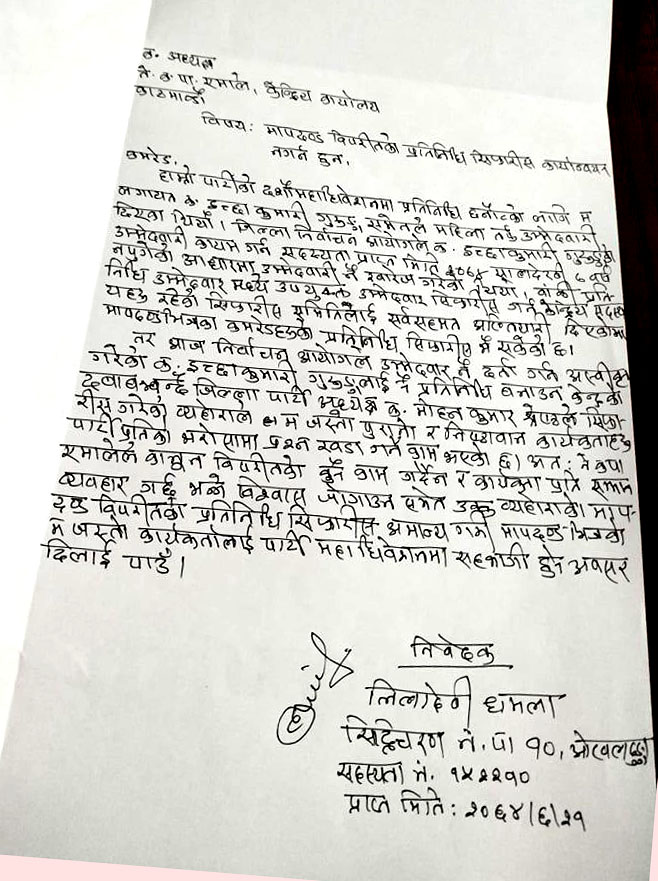 क. अध्यक्ष
ने. क. पा. एमाले, केन्द्रिय कार्यालय
काठमाडौं
विषय: मापदण्ड विपरीतको प्रतिनिधि सिफारीस कार्यान्वयन
नगर्न हुन,
कमरेड,
हाम्रो पार्टीको दशौं महाधिवेशनमा प्रतिनिधि छनौटको लागि म
लगायत क. इच्छा कुमारी गुरुङ, समेतले महिला तर्फ उम्मेदवारी
दिएका थियौं। जिल्ला निर्वाचन आयोगले क. इच्छाकुमारी गुरुङको
उम्मेदवारी कायम गर्न सदस्यता प्राप्त मिति २०६५ सालदेखी ८ वर्ष
नपुगेको आधारमा उम्मेदवारी नै खारेज गरेको थियो। बाँकी प्रति-
निधि उम्मेदवार मध्ये उपयुक्त उम्मेदवार सिफारीस गर्न केन्द्रिय सदस्य
यहरु रहेको सिफारीस समितिलाई सर्वसहमत प्राप्त दिएकोमा
मापदण्ड भित्रका कमरेडहरुको प्रतिनिधि सिफारीस भै सकेको छ।
तर आज निर्वाचन आयोगले उम्मेदवार नै दर्ता गर्न अस्वीकृत
गरेको क. इच्छाकुमारी गुरुङलाई नै प्रतिनिधि बनाउन केन्द्रको
दबाब भन्दै जिल्ला पार्टी अध्यक्ष क. मोहन कुमार श्रेष्ठले सिफा-
रीस गरेको व्यहोराले म जस्तो पुरानो र निष्ठावान कार्यकर्ताहरु
पार्टी प्रतिको भरोसामा प्रश्न खडा गर्ने काम भएको छ। अत: नेकपा
एमालेले कानुन विपरीतको कुनै काम गर्दैन र कार्यकर्ता प्रति समान
व्यवहार गर्छ भन्ने विश्वास जगाउन समेत उक्त व्यहोराको माप-
दण्ड विपरीतको प्रतिनिधि सिफारीस अमान्य गरी मापदण्ड भित्रको
म जस्तो कार्यकर्तालाई पार्टी महाधिवेशनमा सहभागी हुने अवसर
दिलाई पाउँ।
निवेदक
लिलादेवी धमला
सिद्धिचरण न. पा १०, ओखलढुङ्गा
सदस्यता नं. १५२२१०
प्राप्त मिति: २०६४/६/२१